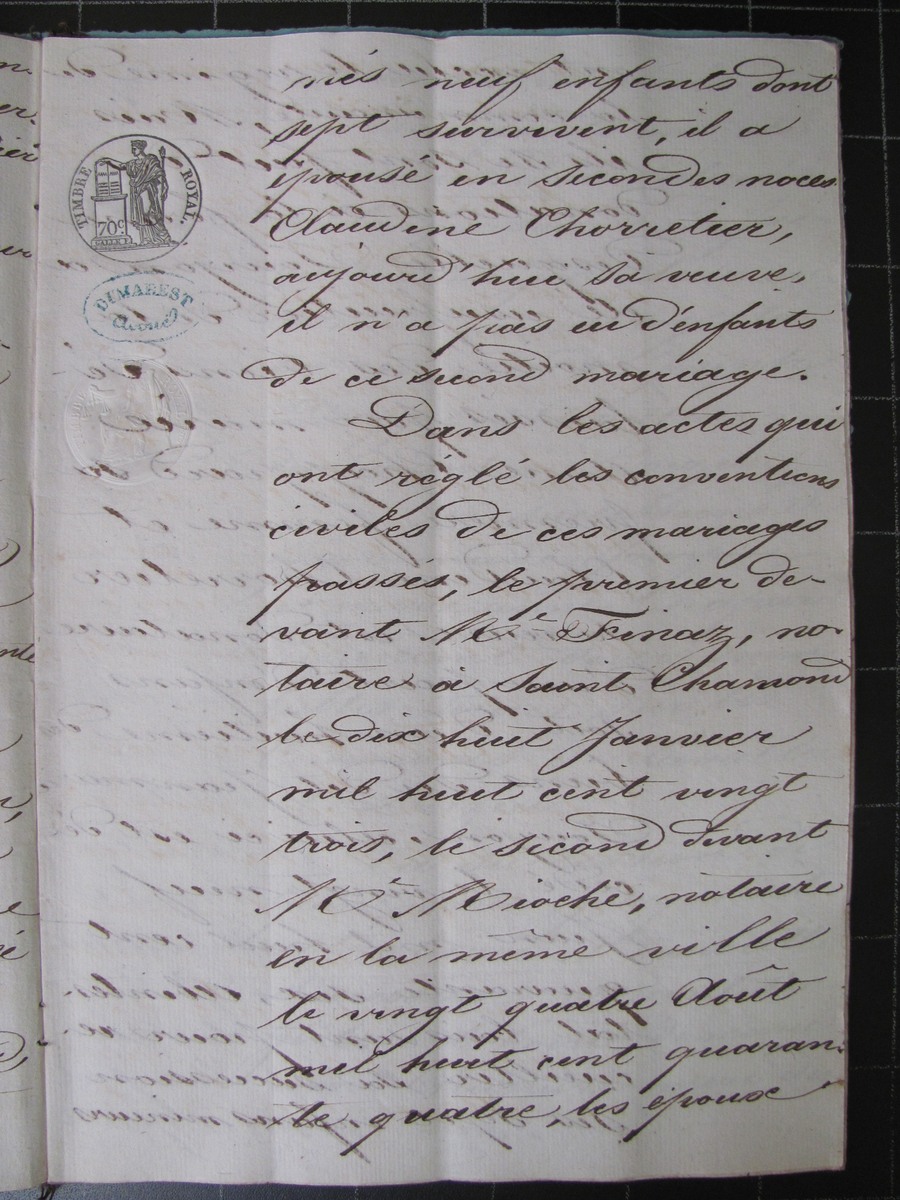 nés neuf enfants dont
sept survivent, il a
épousé en secondes noces
Claudine Chorretier,
aujourd'hui sa veuve,
il n'a pas eu d'enfants
de ce second mariage.
Dans les actes qui
ont réglé les conventions
civiles de ces mariages
passés, le premier de-
vant Me Finaz, no-
taire à Saint Chamond
le dix huit Janvier
mil huit cent vingt
trois, le second devant
Me Mioche, notaire
en la même ville
le vingt quatre Août
mil huit cent quaran-
te quatre, les époux
TIMBRE ROYAL.
70c.
DIMAREST
Avoué